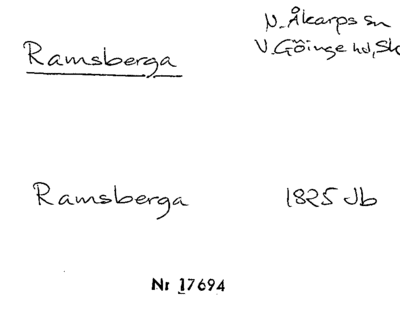 N. Åkarps sn
Ramsberga
V. Göinge hd, Sk
Ramsberga 1825 Jb
Nr 17694